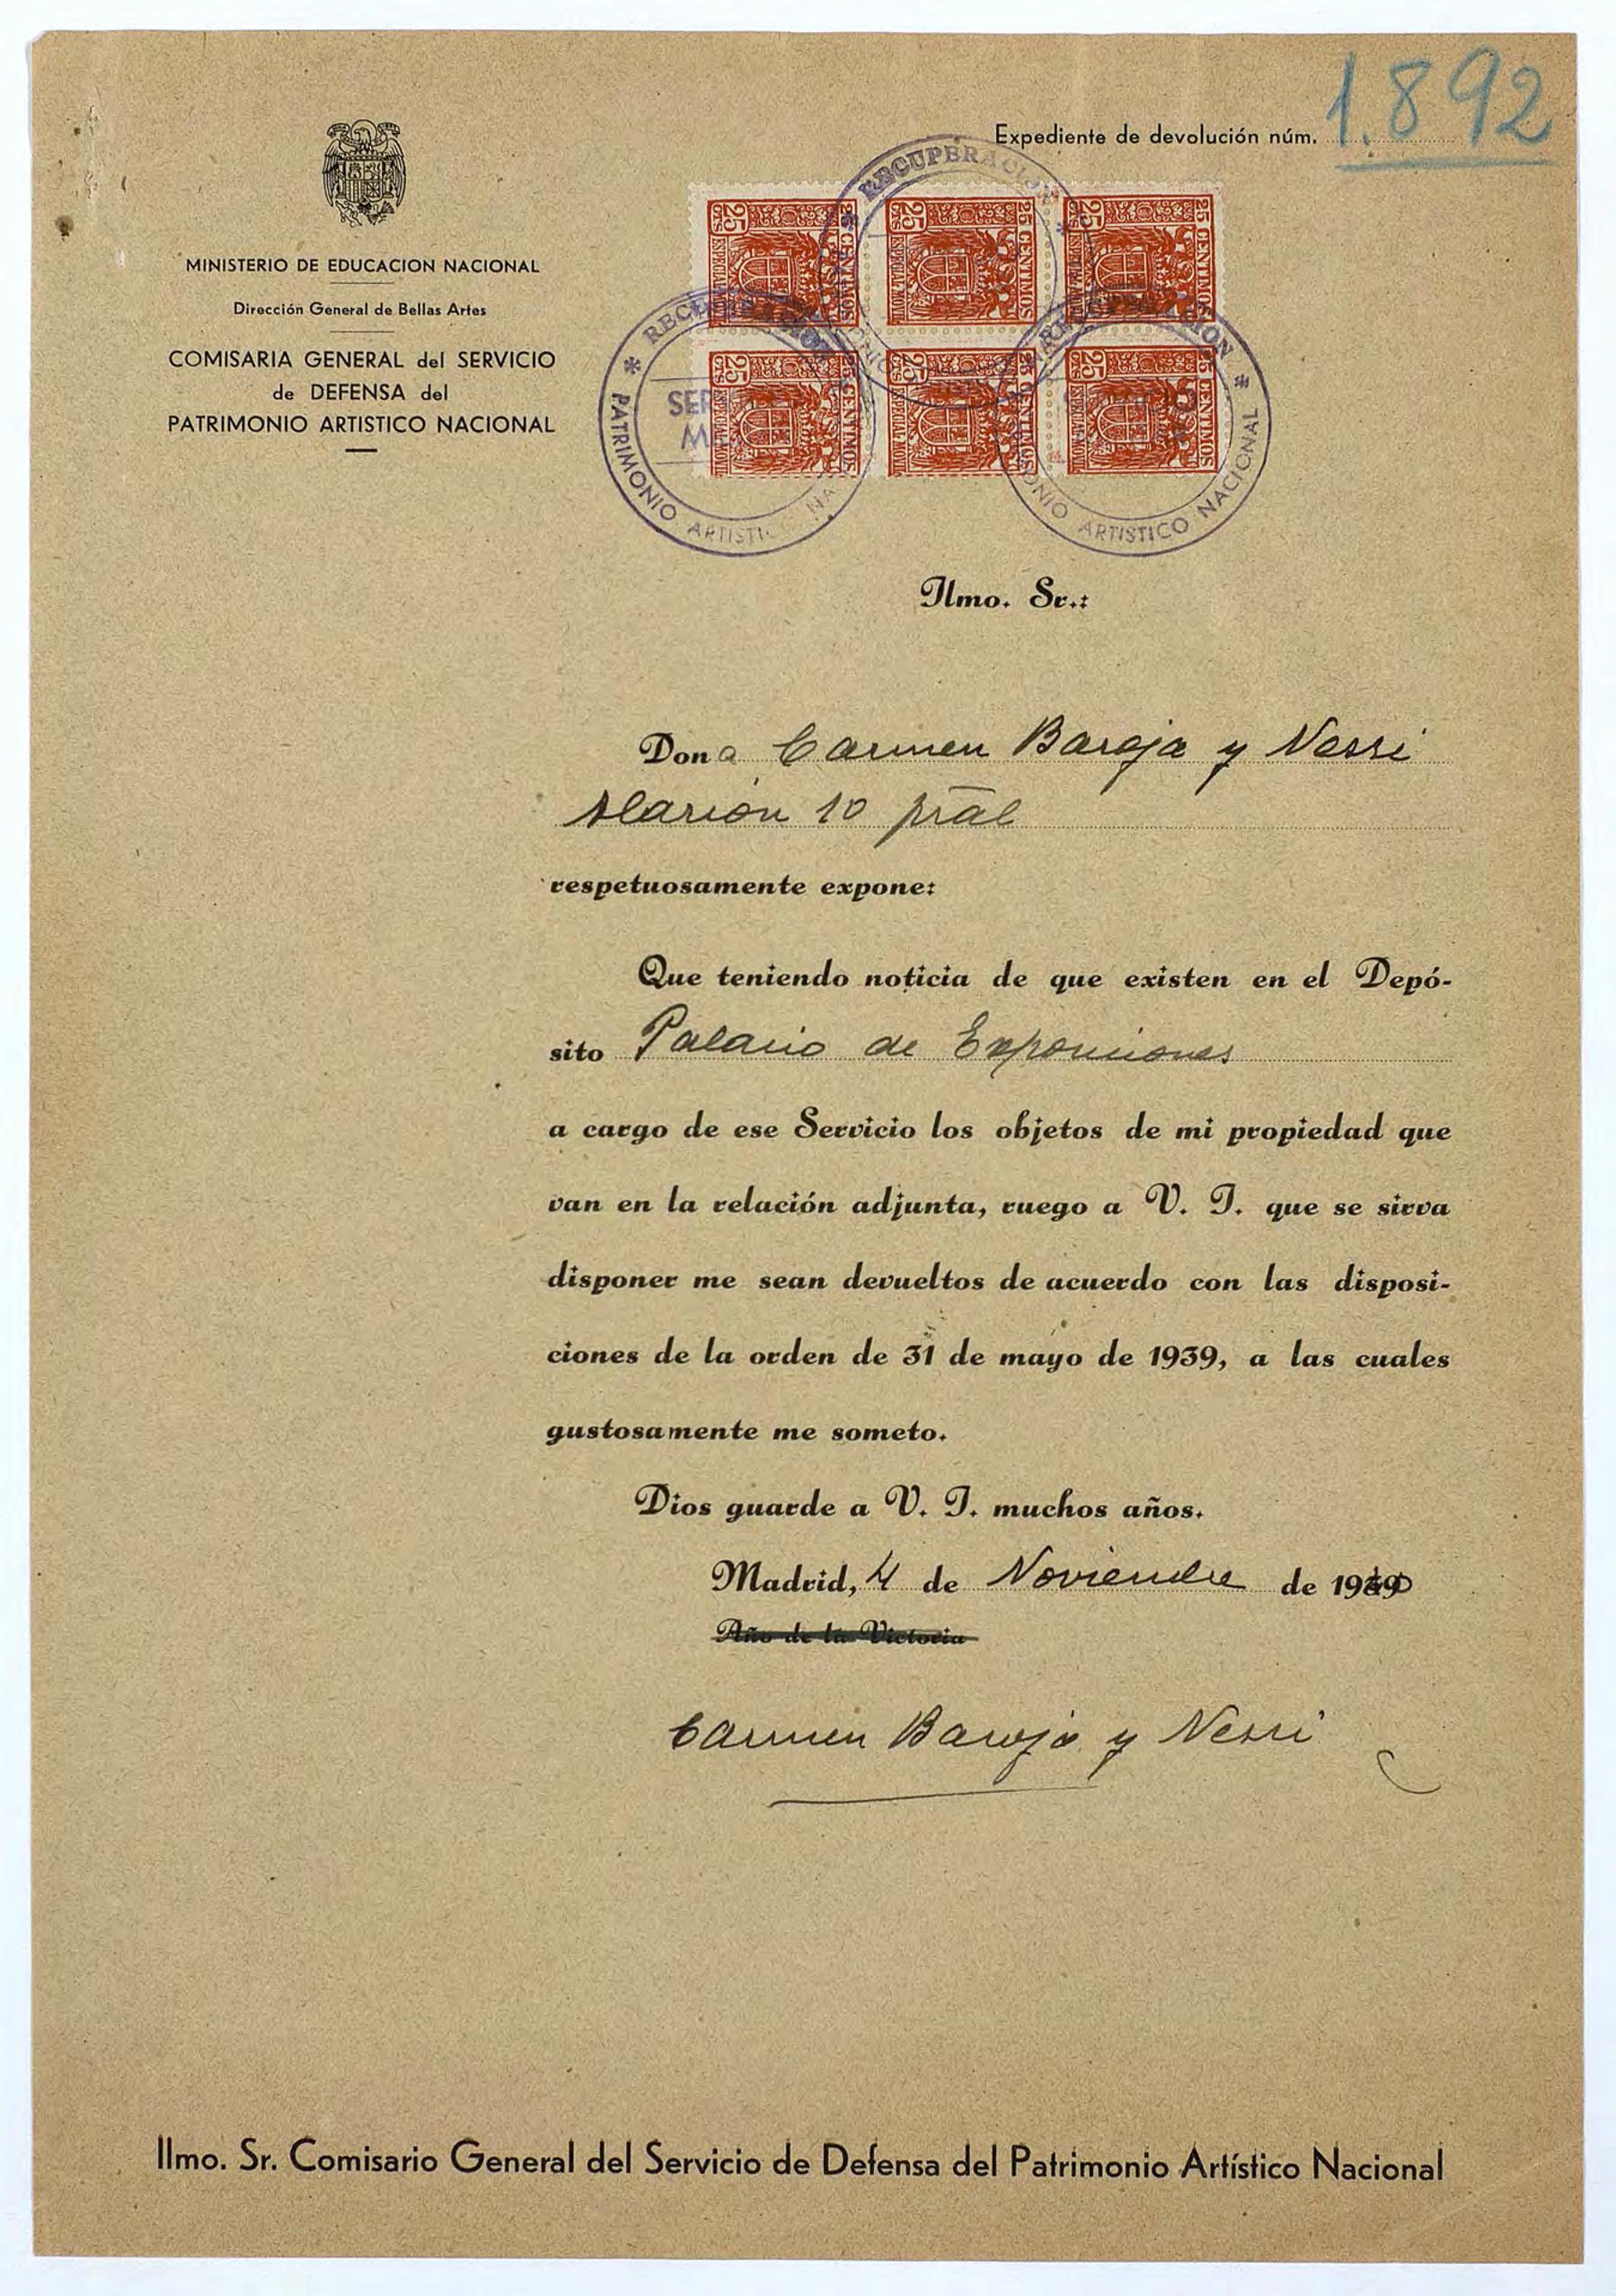 Expediente de devolución núm. 1.892
MINISTERIO DE EDUCACION NACIONAL
Dirección General de Bellas Artes
COMISARIA GENERAL del SERVICIO
de DEFENSA del
PATRIMONIO ARTISTICO NACIONAL
25 CTS ESPECIAL MOVIL 25 CENTIMOS
25 CTS ESPECIAL MOVIL 25 CENTIMOS
25 CTS ESPECIAL MOVIL 25 CENTIMOS
25 CTS ESPECIAL MOVIL 25 CENTIMOS
25 CTS ESPECIAL MOVIL 25 CENTIMOS
25 CTS ESPECIAL MOVIL 25 CENTIMOS
RECUPERACION
RECUPERACION PATRIMONIO ARTISTICO
RECUPERACION ARTISTICO NACIONAL
Ilmo. Sr.:
Dona Carmen Baroja y Nessi
Alarcón 10 pral
respetuosamente expone:
Que teniendo noticia de que existen en el Depó-
sito Palacio de Exposiciones
a cargo de ese Servicio los objetos de mi propiedad que
van en la relación adjunta, ruego a V. I. que se sirva
disponer me sean devueltos de acuerdo con las disposi-
ciones de la orden de 31 de mayo de 1939, a las cuales
gustosamente me someto.
Dios guarde a V. I. muchos años.
Madrid, 4 de Noviembre de 1940
Año de la Victoria
Carmen Baroja y Nessi
Ilmo. Sr. Comisario General del Servicio de Defensa del Patrimonio Artístico Nacional